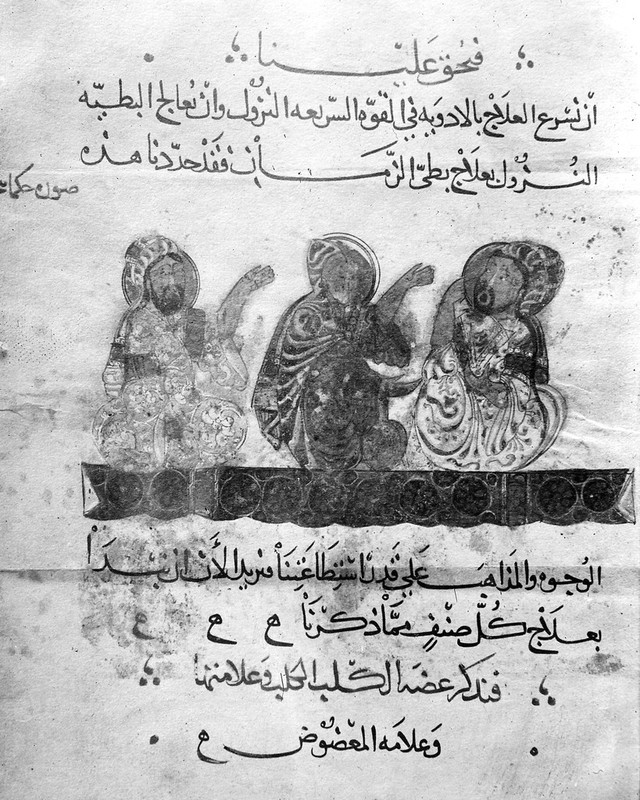 فحق علينا
أن نسرع العلاج بالادويه في القوه السريعه النزول وان نعالج البطيه
النزول بعلاج بطئ الزمان فقد حددنا هذه
صوره حكما
الوجوه والمذاهب علي قدر استطاعتنا فنريد الأن ان نبدأ
بعلاج كل صنف مما ذكرنا ه ه ه
فنذكر عضه الكلب الكلب وعلامتها
وعلامه المعضوض ه